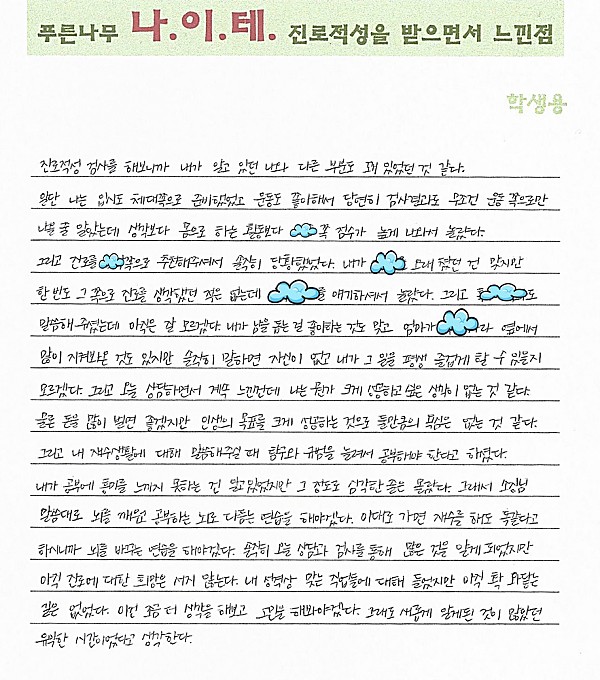 푸른나무 나.이.테. 진로적성을 받으면서 느낀점
학생용
진로적성 검사를 해보니까 내가 알고 있던 나와 다른 부분도 꽤 있었던 것 같다.
일단 나는 입시도 체대쪽으로 준비했었고 운동도 좋아해서 당연히 검사결과도 무조건 운동 쪽으로만
나올 줄 알았는데 생각보다 몸으로 하는 활동보다 쪽 점수가 높게 나와서 놀랐다.
그리고 진로를 쪽으로 추천해주셔서 솔직히 당황했었다. 내가 오래 했던 건 맞지만
한번도 그 쪽으로 진로를 생각했던 적은 없는데 를 얘기하셔서 놀랐다. 그리고 도
말씀해 주셨는데 아직은 잘 모르겠다. 내가 남을 돕는 걸 좋아하는 것도 맞고 엄마가 라 옆에서
많이 지켜봐온 것도 있지만 솔직히 말하면 자신이 없고 내가 그 일을 평생 즐겁게 할 수 있을지
모르겠다. 그리고 오늘 상담하면서 계속 느낀건데 나는 뭔가 크게 성공하고 싶은 생각이 없는 것 같다.
물론 돈을 많이 벌면 좋겠지만 인생의 목표를 크게 성공하는 것으로 둘만큼의 욕심은 없는 것 같다.
그리고 내 재수생활에 대해 말씀해주실 때 탐구와 규범을 늘려서 공부해야 한다고 하셨다.
내가 공부에 흥미를 느끼지 못하는 건 알고있었지만 그 정도로 심각한 줄은 몰랐다. 그래서 소장님
말씀대로 뇌를 깨우고 공부하는 뇌로 다듬는 연습을 해야겠다. 이대로 가면 재수를 해도 똑같다고
하시니까 뇌를 바꾸는 연습을 해야겠다. 솔직히 오늘 상담과 검사를 통해 많은 것을 알게 되었지만
아직 진로에 대한 희망은 서지 않는다. 내 성격상 맞는 직업들에 대해 들었지만 아직 확 와닿는
길은 없었다. 이건 조금 더 생각을 해보고 고민을 해봐야겠다. 그래도 새롭게 알게된 것이 많았던
유익한 시간이었다고 생각한다.